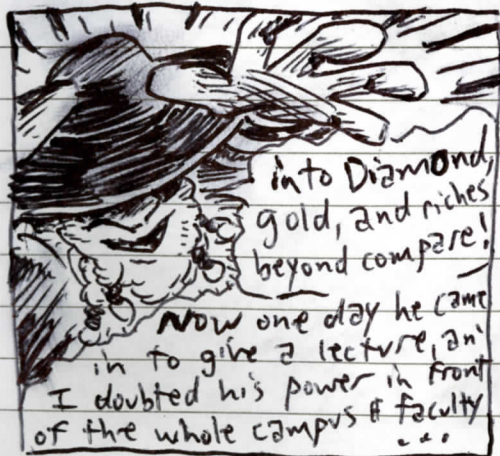 into Diamond,
gold, and riches
beyond compare!
Now one day he came
in to give a lecture, an'
I doubted his power in front
of the whole campus & faculty
...